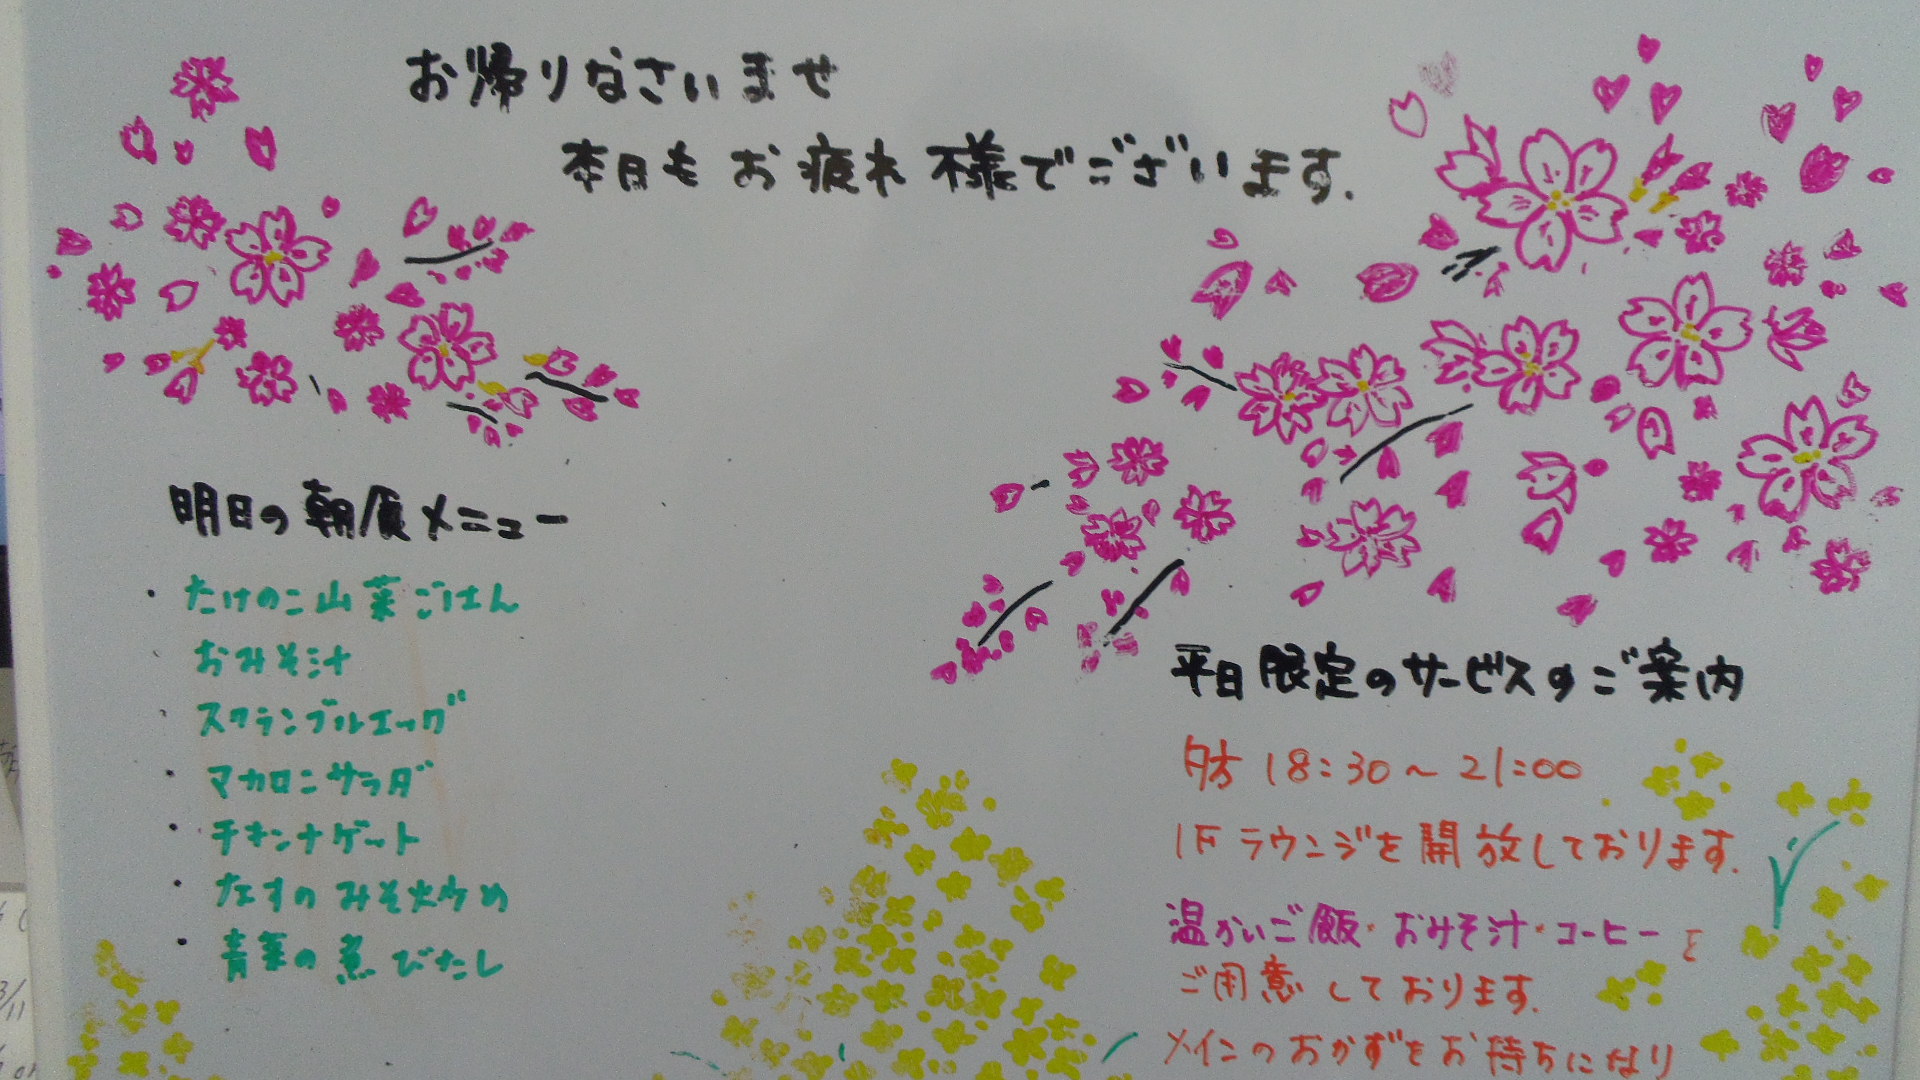 お帰りなさいませ
本日もお疲れ様でございます.
明日の朝食メニュー
・たけのこ山菜ごはん
・おみそ汁
・スクランブルエッグ
・マカロニサラダ
・チキンナゲット
・なすのみそ炒め
・青菜の煮びたし
平日限定のサービスのご案内
夕方 18:30～21:00
1Fラウンジを開放しております.
温かいご飯・おみそ汁・コーヒーを
ご用意しております.
メインのおかずをお持ちになり